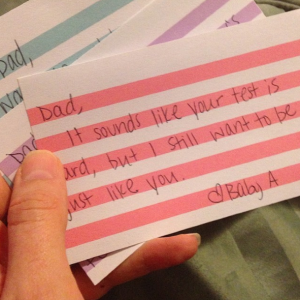 Dad,
It sounds like your test is
ard, but I still want to be
just like you.
♡Baby A
Dad,